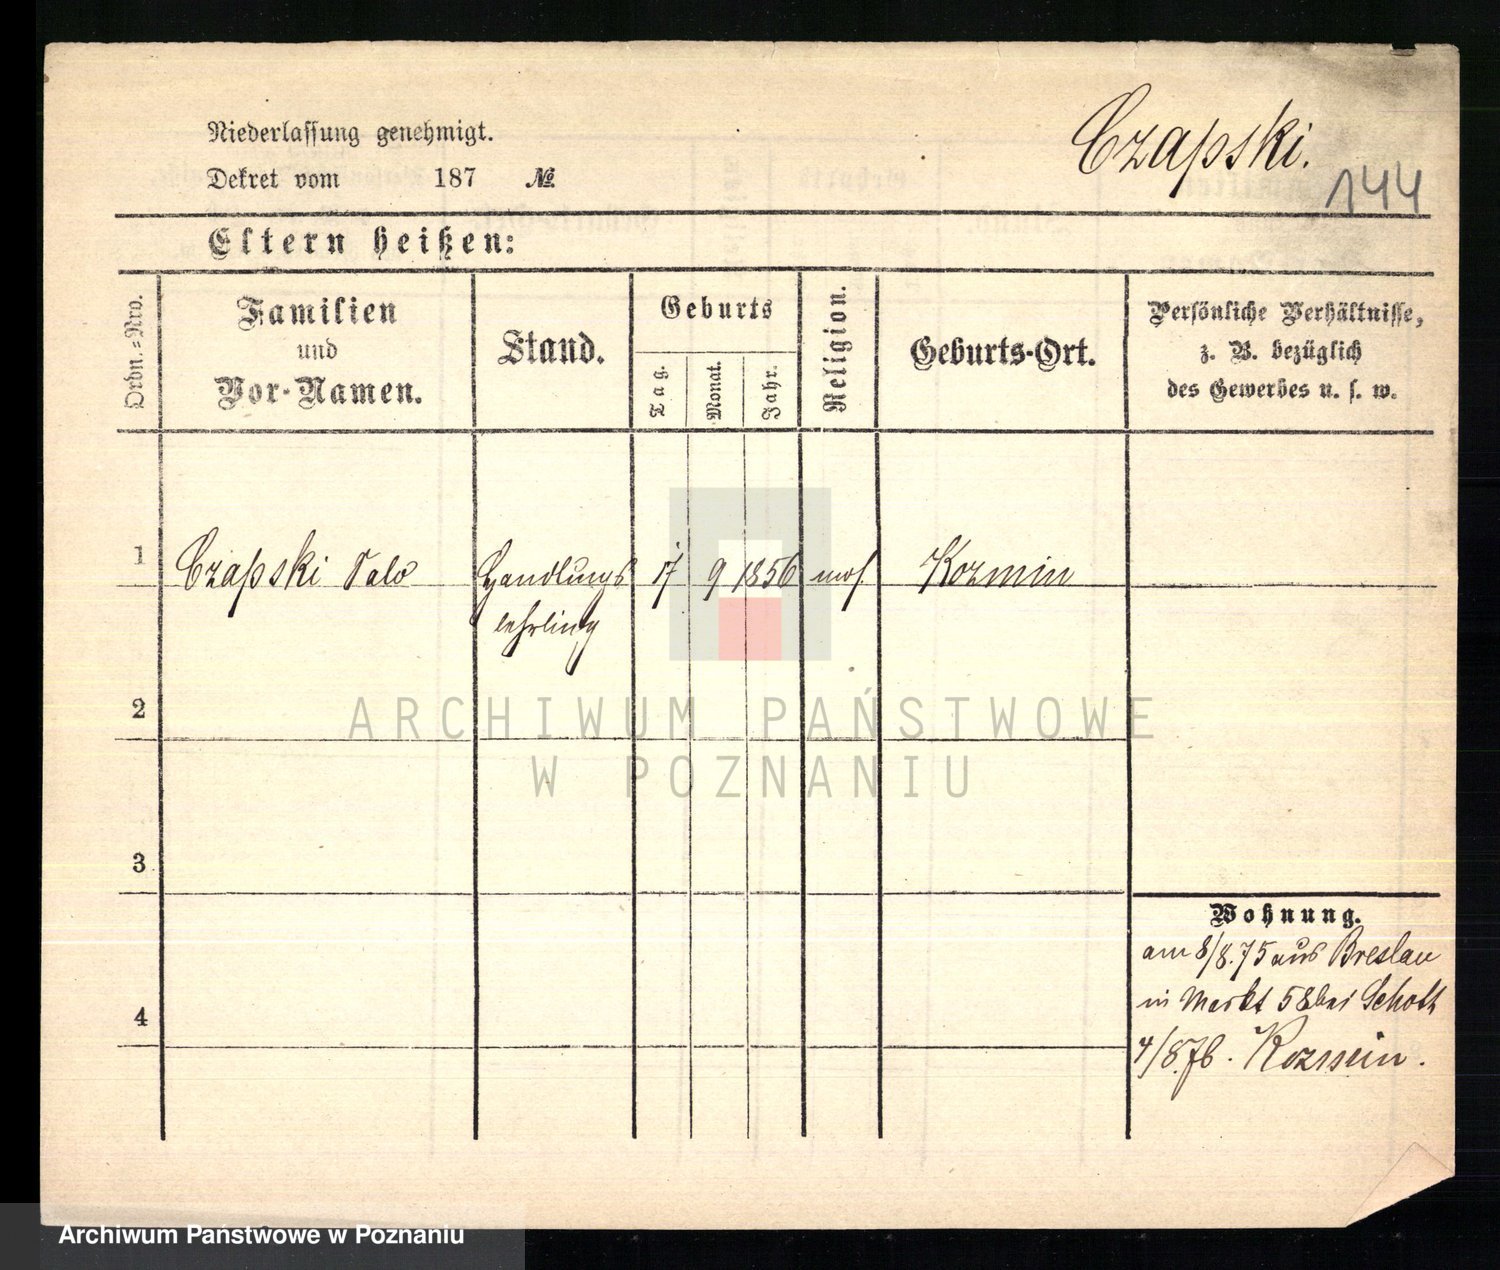 Niederlassung genehmigt.
Dekret vom 187 №
Czapski.
144
Eltern heißen:
Ordn.=Nro.
Familien
und
Vor-Namen.
Stand.
Geburts
Tag.
Monat.
Jahr.
Religion.
Geburts-Ort.
Persönliche Verhältnisse,
z. B. bezüglich
des Gewerbes u. s. w.
1 Czapski Handlungs 17 9 1856 mos Kozmin
lehrling
2
3
4
ARCHIWUM PAŃSTWOWE
W POZNANIU
Wohnung.
am 8/8.75 aus Breslau
in Markt 58 bei Schott
4/8.76. Kozmin.
Archiwum Państwowe w Poznaniu